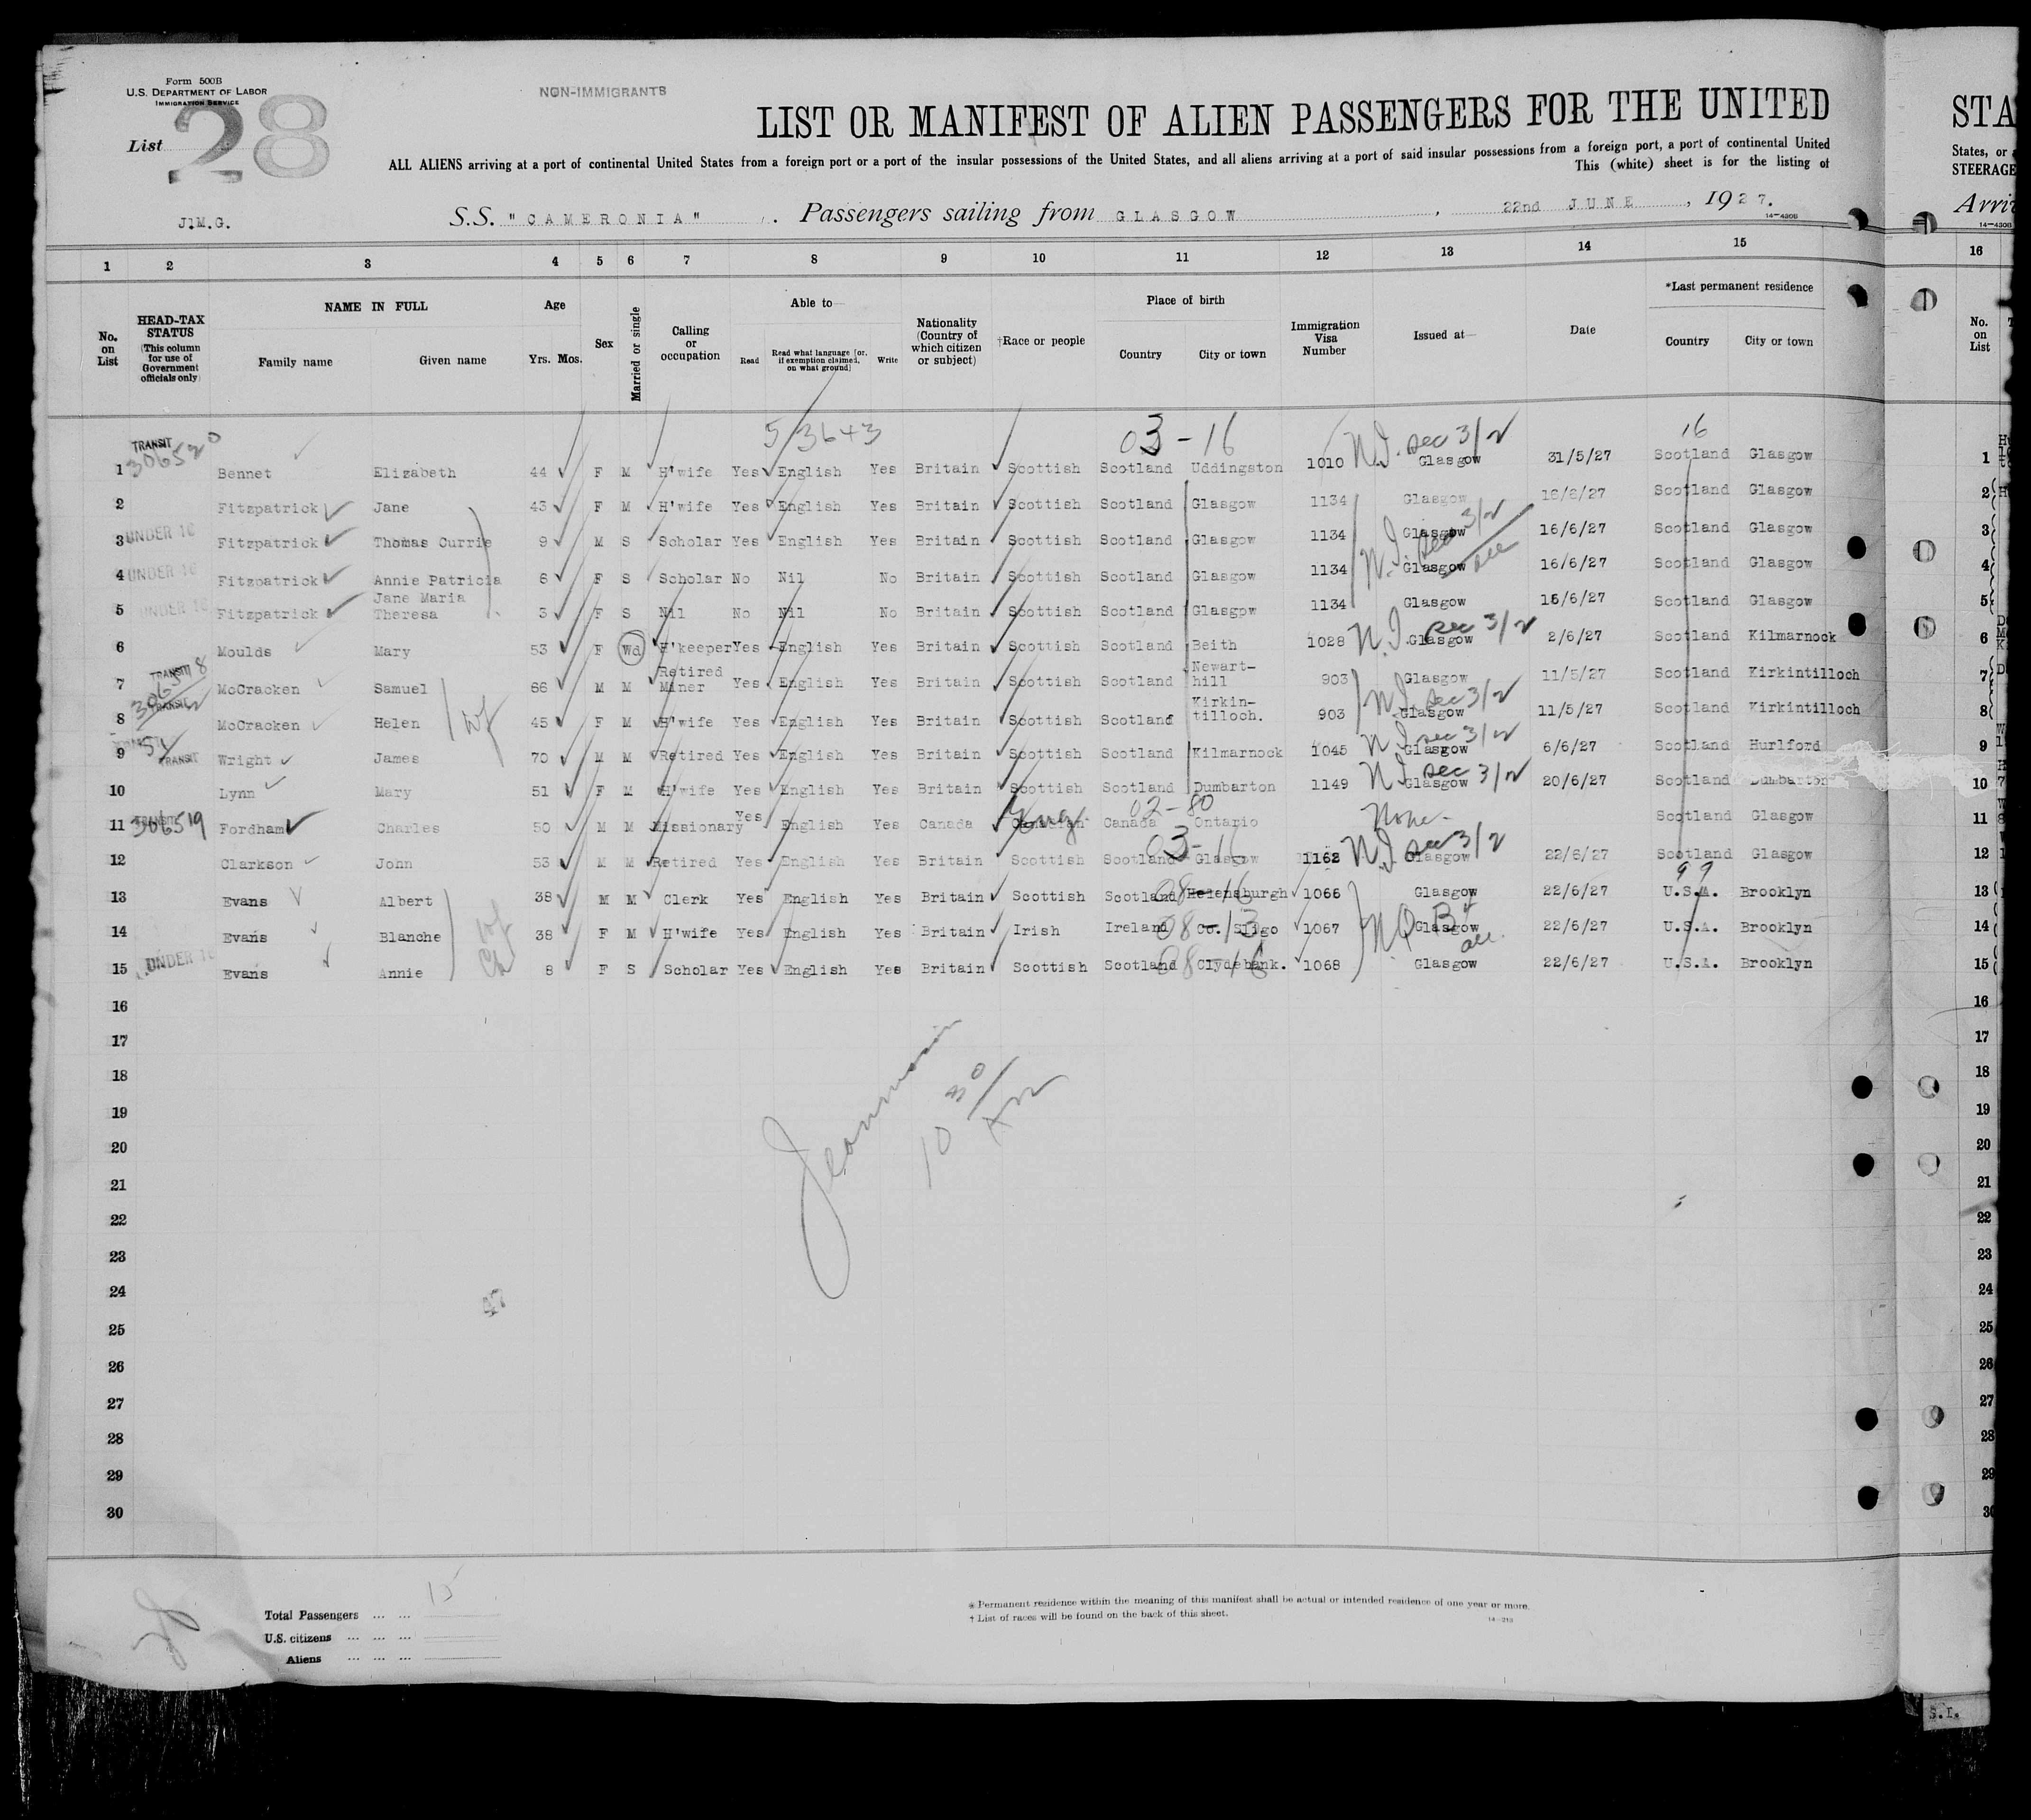 Form 500B
U.S. DEPARTMENT OF LABOR
IMMIGRATION SERVICE
NON-IMMIGRANTS
List 28
LIST OR MANIFEST OF ALIEN PASSENGERS FOR THE UNITED STA
ALL ALIENS arriving at a port of continental United States from a foreign port or a port of the insular possessions of the United States, and all aliens arriving at a port of said insular possessions from a foreign port, a port of continental United States, or
This (white) sheet is for the listing of STEERAGE
J.M.G.
S.S. "CAMERONIA" . Passengers sailing from GLASGOW , 22nd JUNE , 1927.
14-430B
1 2 3 4 5 6 7 8 9 10 11 12 13 14 15 16
No. on List
HEAD-TAX STATUS (This column for use of Government officials only)
NAME IN FULL
Family name Given name
Age
Yrs. Mos.
Sex
Married or single
Calling or occupation
Able to—
Read Read what language [or, if exemption claimed, on what ground] Write
Nationality (Country of which citizen or subject)
†Race or people
Place of birth
Country City or town
Immigration Visa Number
Issued at—
Date
*Last permanent residence
Country City or town
No. on List
5/3643 03-16 N.I. sec 3/2 16
1 TRANSIT 306520 Bennet Elizabeth 44 F M H'wife Yes English Yes Britain Scottish Scotland Uddingston 1010 Glasgow 31/5/27 Scotland Glasgow 1
2 Fitzpatrick Jane 43 F M H'wife Yes English Yes Britain Scottish Scotland Glasgow 1134 Glasgow 16/6/27 Scotland Glasgow 2
3 UNDER 16 Fitzpatrick Thomas Currie 9 M S Scholar Yes English Yes Britain Scottish Scotland Glasgow 1134 Glasgow 16/6/27 Scotland Glasgow 3
N.I. sec 3/2 all
4 UNDER 16 Fitzpatrick Annie Patricia 6 F S Scholar No Nil No Britain Scottish Scotland Glasgow 1134 Glasgow 16/6/27 Scotland Glasgow 4
5 UNDER 16 Fitzpatrick Jane Maria Theresa 3 F S Nil No Nil No Britain Scottish Scotland Glasgow 1134 Glasgow 16/6/27 Scotland Glasgow 5
6 Moulds Mary 53 F Wd H'keeper Yes English Yes Britain Scottish Scotland Beith 1028 N.I. sec 3/2 Glasgow 2/6/27 Scotland Kilmarnock 6
7 TRANSIT 306518 McCracken Samuel 66 M M Retired Miner Yes English Yes Britain Scottish Scotland Newart-hill 903 Glasgow 11/5/27 Scotland Kirkintilloch 7
8 TRANSIT McCracken Helen wf 45 F M H'wife Yes English Yes Britain Scottish Scotland Kirkin-tilloch. 903 N.I. sec 3/2 Glasgow 11/5/27 Scotland Kirkintilloch 8
9 TRANSIT Wright James 70 M M Retired Yes English Yes Britain Scottish Scotland Kilmarnock 1045 N.I. sec 3/2 Glasgow 6/6/27 Scotland Hurlford 9
10 Lynn Mary 51 F M H'wife Yes English Yes Britain Scottish Scotland Dumbarton 1149 N.I. sec 3/2 Glasgow 20/6/27 Scotland Dumbarton 10
02-80
11 TRANSIT 306519 Fordham Charles 50 M M Missionary Yes English Yes Canada Canadian Canada Ontario None. Scotland Glasgow 11
03-16
12 Clarkson John 53 M M Retired Yes English Yes Britain Scottish Scotland Glasgow 1162 N.I. sec 3/2 Glasgow 22/6/27 Scotland Glasgow 12
99
13 Evans Albert 38 M M Clerk Yes English Yes Britain Scottish Scotland 08-16 Helensburgh 1066 Glasgow 22/6/27 U.S.A. Brooklyn 13
14 Evans Blanche wf 38 F M H'wife Yes English Yes Britain Irish Ireland 08-13 Co. Sligo 1067 N.Q.B. all Glasgow 22/6/27 U.S.A. Brooklyn 14
15 UNDER 16 Evans Annie Ch 8 F S Scholar Yes English Yes Britain Scottish Scotland 08-16 Clydebank. 1068 Glasgow 22/6/27 U.S.A. Brooklyn 15
16 16
17 17
18 18
19 19
20 20
21 21
22 22
23 23
24 24
25 25
26 26
27 27
28 28
29 29
30 30
10 30/AM
47
Total Passengers ... ... 15
U.S. citizens ... ... ...
Aliens ... ... ...
* Permanent residence within the meaning of this manifest shall be actual or intended residence of one year or more.
† List of races will be found on the back of this sheet.
14-213
S.I.